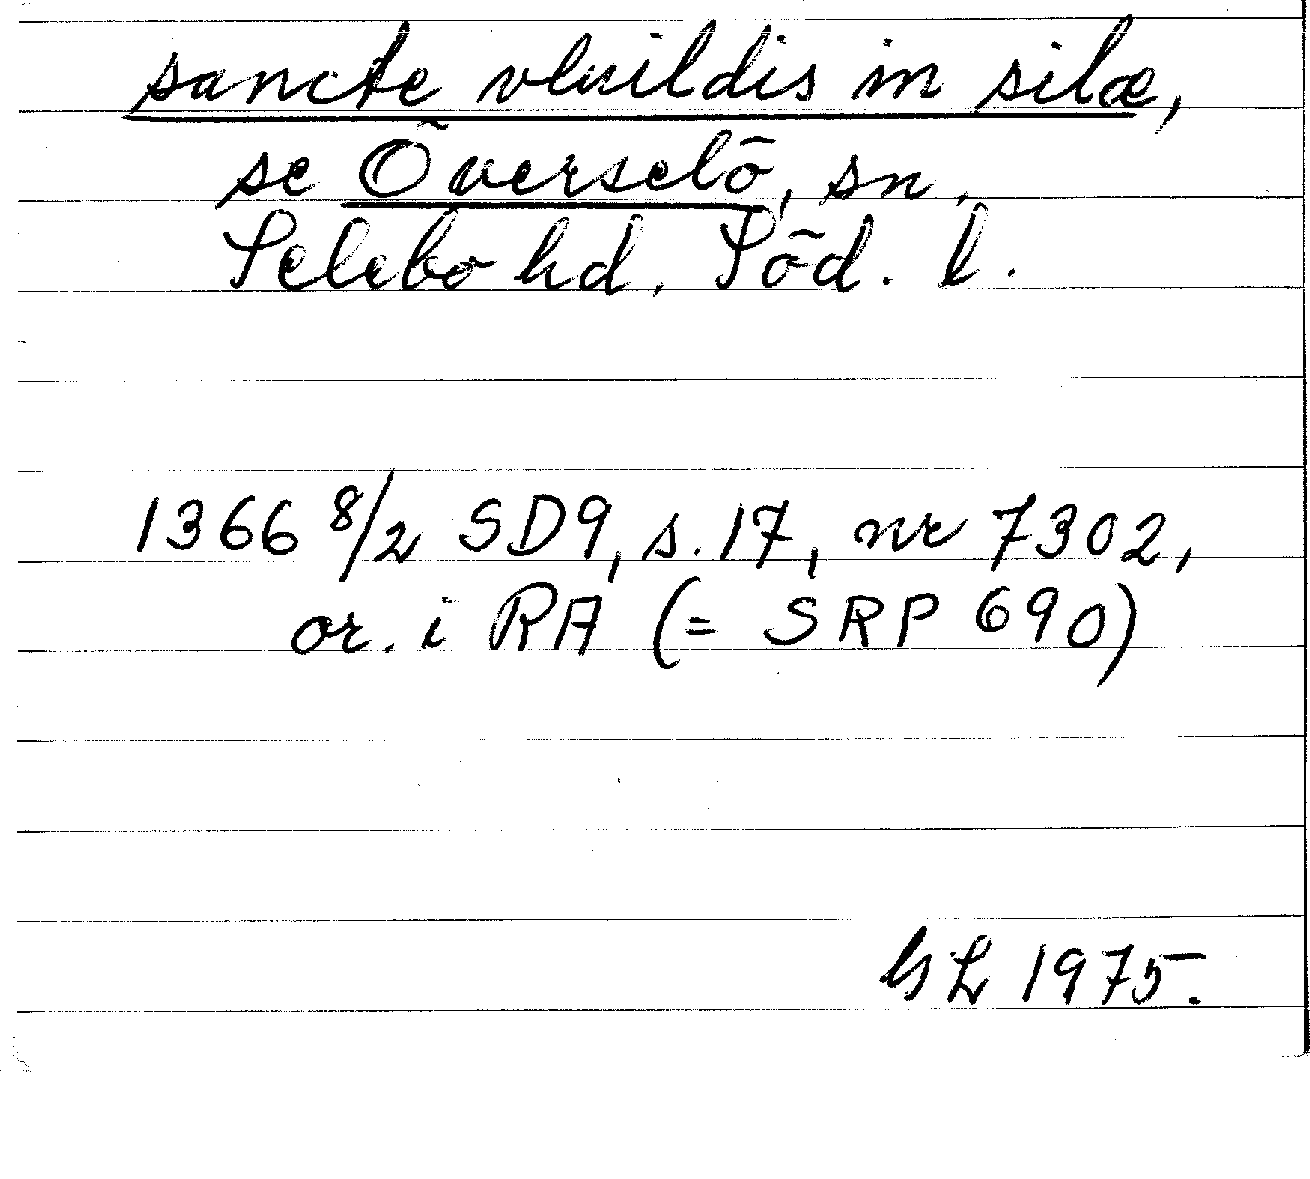 sancte vluildis in silæ,
se Överselö, sn,
Selebo hd, Söd. l.
1366 8/2 SD9, s. 17, nr 7302,
or. i RA (= SRP 690)
GL 1975.